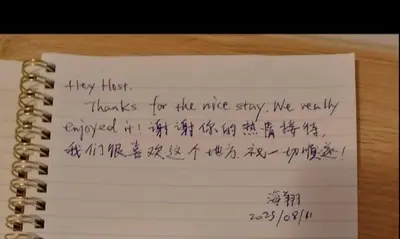 Hey Host.
Thanks for the nice stay. We really
enjoyed it! 谢谢你的热情接待,
我们很喜欢这个地方, 祝一切顺遂!
海翔
2023/08/11